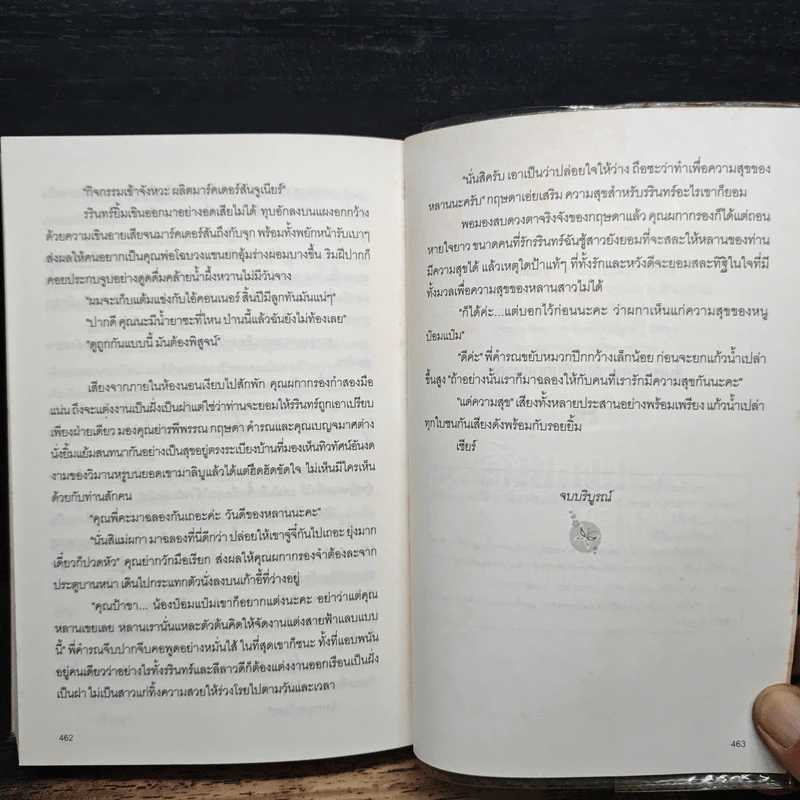 "กิจกรรมเข้าจังหวะ ผลิตมาร์คเดอร์สันจูเนียร์"
รรินทร์ยิ้มเขินออกมาอย่างอดเสียไม่ได้ ทุบอักลงบนแผงอกกว้าง
ด้วยความเขินอายเสียจนมาร์คเดอร์สันถึงกับจุก พร้อมทั้งพยักหน้ารับเบาๆ
ส่งผลให้คนอยากเป็นคุณพ่อโฉบวงแขนยกอุ้มร่างผอมบางขึ้น ริมฝีปากก็
คอยประกบจูบอย่างดูดดื่มคล้ายน้ำผึ้งหวานไม่มีวันจาง
"ผมจะเก็บแต้มแข่งกับไอ้คอนเนอร์ สิ้นปีมีลูกทันมันแน่ๆ"
"ปากดี คุณนะมีน้ำยาซะที่ไหน ปานนี้แล้วฉันยังไม่ท้องเลย"
"ดูถูกกันแบบนี้ มันต้องพิสูจน์"
เสียงจากภายในห้องนอนเงียบไปสักพัก คุณผกากรองกำสองมือ
แน่น ถึงจะแต่งงานเป็นฝั่งเป็นฝาแต่ใช่ว่าท่านจะยอมให้รรินทร์ถูกเอาเปรียบ
เพียงฝ่ายเดียว มองคุณย่ารพีพรรณ กฤษดา คำรณและคุณเบญจมาศต่าง
นั่งยิ้มแย้มสนทนากันอย่างเป็นสุขอยู่ตรงระเบียงบ้านที่มองเห็นทิวทัศน์อันงด
งามของวิมานหรูบนยอดเขามาลิบูแล้วได้แต่ฮึดฮัดขัดใจ ไม่เห็นมีใครเห็น
ด้วยกับท่านสักคน
"คุณพี่คะมาฉลองกันเถอะค่ะ วันดีของหลานนะคะ"
"นั่นสิแม่ผกา มาฉลองที่นี่ดีกว่า ปล่อยให้เขาจู๋จี๋กันไปเถอะ ยุ่งมาก
เดี๋ยวก็ปวดหัว" คุณย่ากวักมือเรียก ส่งผลให้คุณผกากรองจำต้องละจาก
ประตูบานหนา เดินไปกระแทกตัวนั่งลงบนเก้าอี้ที่ว่างอยู่
"คุณป้าขา... น้องป๋อมแป๋มเขาก็อยากแต่งนะคะ อย่าว่าแต่คุณ
หลานเขยเลย หลานเรานั่นแหละตัวต้นคิดให้จัดงานแต่งสายฟ้าแลบแบบ
นี้" พี่คำรณจีบปากจีบคอพูดอย่างหมั่นไส้ ในที่สุดเขาก็ชนะ ทั้งที่แอบพนัน
อยู่คนเดียวว่าอย่างไรทั้งรรินทร์และลีลาวดีก็ต้องแต่งงานออกเรือนเป็นฝั่ง
เป็นฝา ไม่เป็นสาวแก่ทิ้งความสวยให้ร่วงโรยไปตามวันและเวลา
462
"นั่นสิครับ เอาเป็นว่าปล่อยใจให้ว่าง ถือซะว่าทำเพื่อความสุขของ
หลานนะครับ" กฤษดาเอ่ยเสริม ความสุขสำหรับรรินทร์อะไรเขาก็ยอม
พอมองสบดวงตาจริงจังของกฤษดาแล้ว คุณผกากรองก็ได้แต่ถอน
หายใจยาว ขนาดคนที่รักรรินทร์ฉันชู้สาวยังยอมที่จะสละให้หลานของท่าน
มีความสุขได้ แล้วเหตุใดป้าแท้ๆ ที่ทั้งรักและหวังดีจะยอมสละทิฐิในใจที่มี
ทั้งมวลเพื่อความสุขของหลานสาวไม่ได้
"ก็ได้ค่ะ...แต่บอกไว้ก่อนนะคะ ว่าผกาเห็นแก่ความสุขของหนู
ป๋อมแป๋ม"
"ดีค่ะ" พี่คำรณขยับหมวกปีกกว้างเล็กน้อย ก่อนจะยกแก้วน้ำเปล่า
ขึ้นสูง "ถ้าอย่างนั้นเราก็มาฉลองให้กับคนที่เรารักมีความสุขกันนะคะ"
"แด่ความสุข" เสียงทั้งหลายประสานอย่างพร้อมเพรียง แก้วน้ำเปล่า
ทุกใบชนกันเสียงดังพร้อมกับรอยยิ้ม
เชียร์
จบบริบูรณ์
463